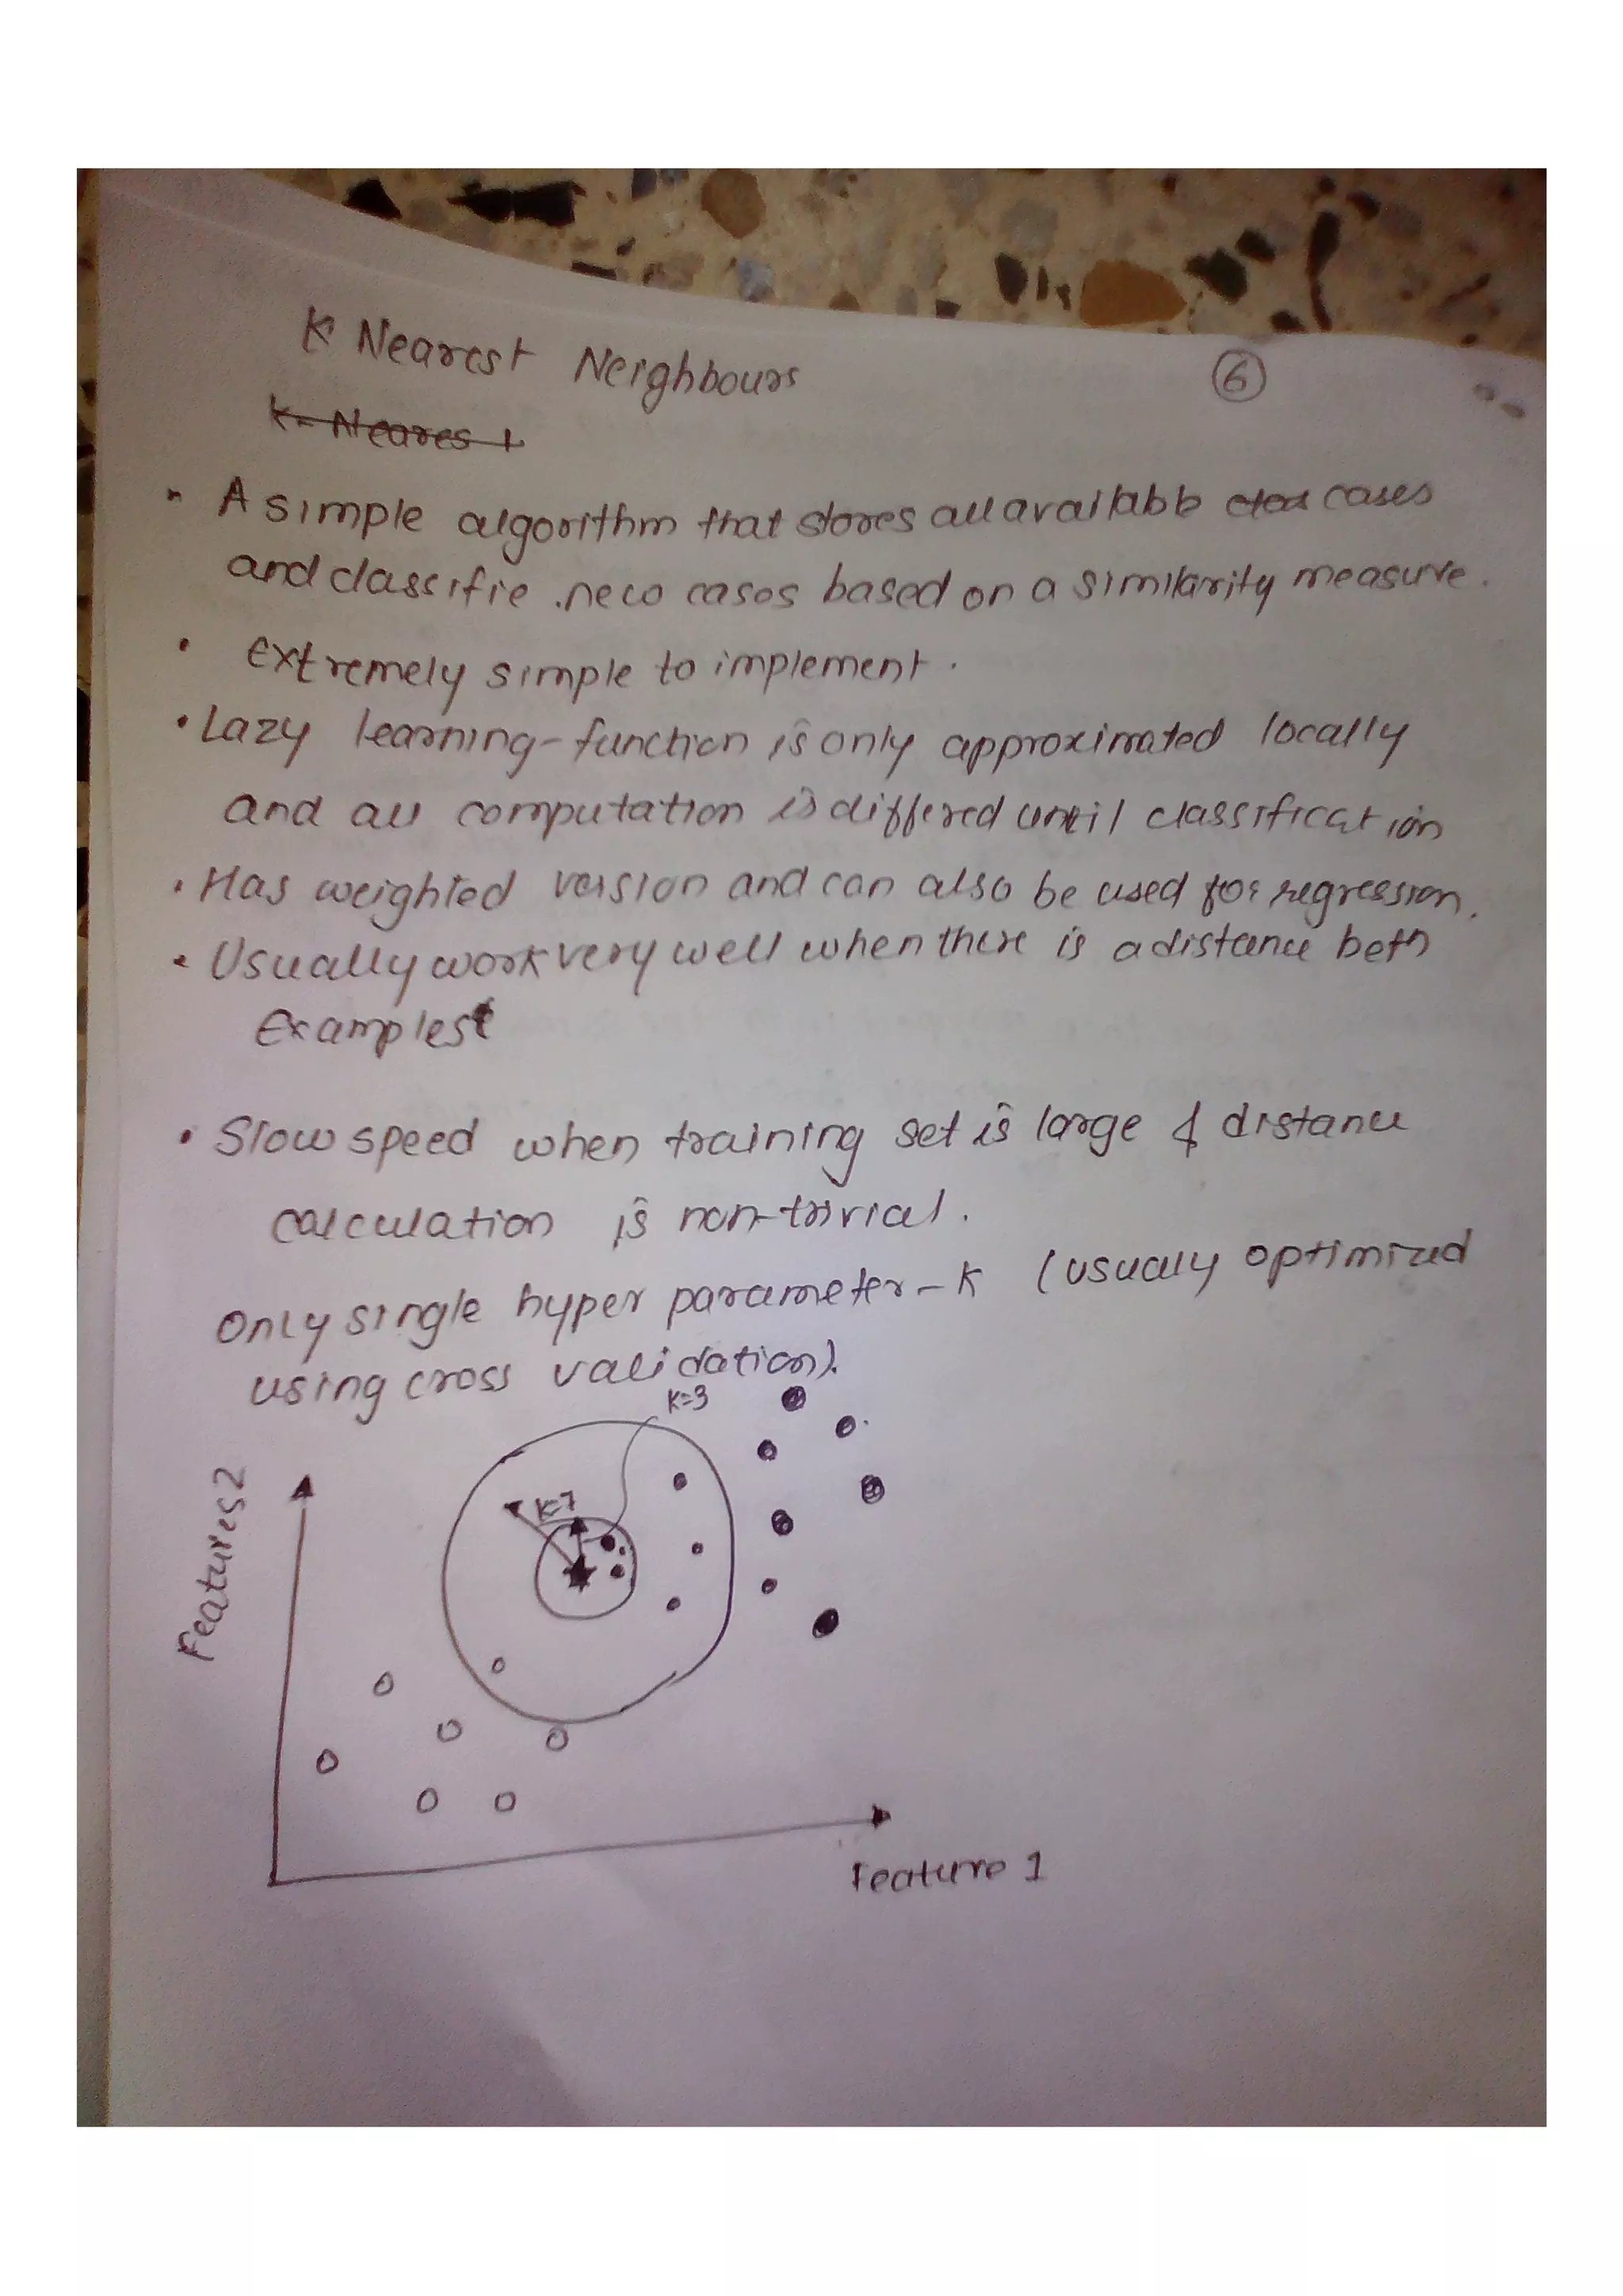 K Nearest Neighbours
6
K-Neares t
A simple algorithm that stores all available clas cases
and classifie new cases based on a similarity measure.
• Extremely simple to implement.
• Lazy learning-function is only approximated locally
and all computation is differed until classification
• Has weighted version and can also be used for regression.
• Usually work very well when there is a distance betn
Examples
• Slow speed when training set is large & distance
calculation is non-trivial.
Only single hyper parameter-K (usually optimized
using cross validation).
K=3
K=7
Features 2
Feature 1